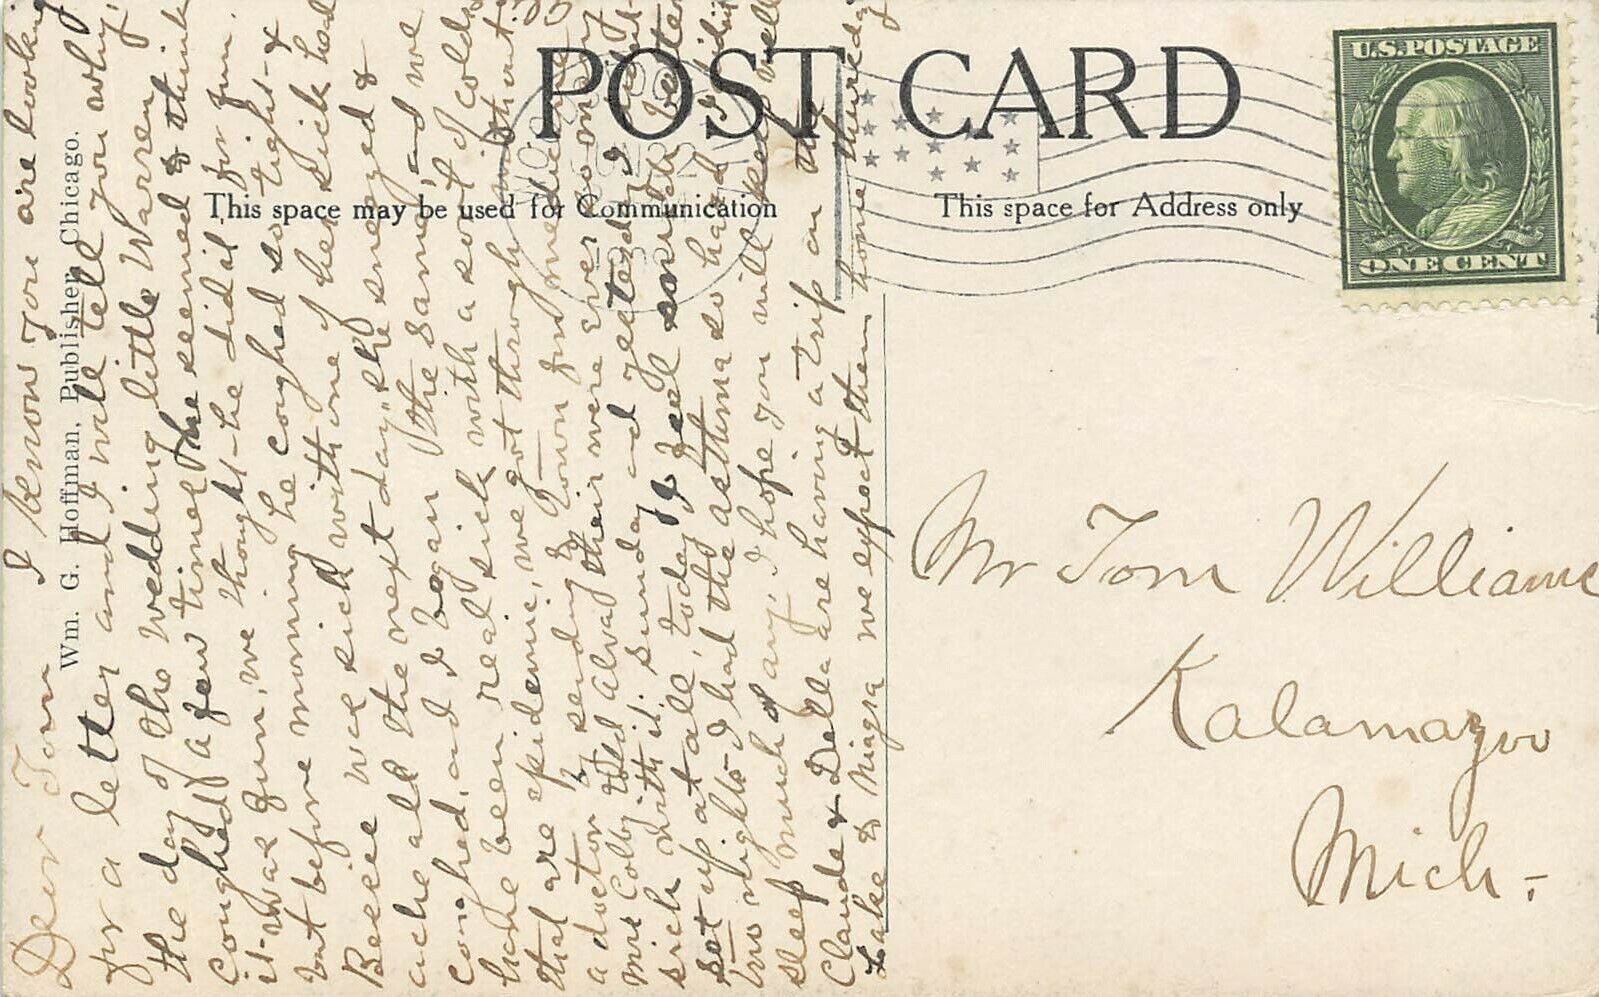 POST CARD
This space may be used for Communication
This space for Address only
U.S. POSTAGE
ONE CENT
Wm. G. Hoffman, Publisher, Chicago.
Mr Tom Williams
Kalamazoo
Mich.
Dear Tom I know you are looking
for a letter and I will tell you why,
the day of the wedding little Warren
coughed a few times he seemed to think
it was fun, we thought he did it for fun
but before morning he coughed so tight &
Beece was sick with one of her sick head
ache all the next day, she sneezed &
coughed, and I began the same, and we
have been real sick with a sort of colds
that are epidemic, we got through without
a doctor by sending to town for medicine
Mrs Colby told Alva their were ever so many
sick with it. Sunday and yesterday I did not
set up at all, today I feel much better
two nights I had the asthma so hard I didnt
sleep much if any, I hope you will keep well
Claude & Della are having a trip on the
Lake to Niagra we expect them home thursday